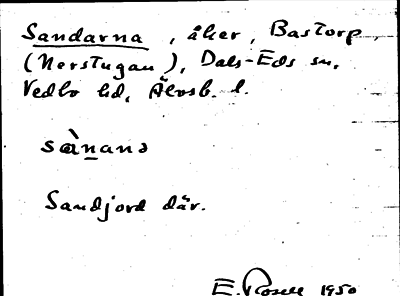 Sandarna, åker, Bastorp,
(Nerstugan), Dals-Eds sn,
Vedbo hd, Älvsb. l.
sànanə
Sandjord där.
E. Rosell 1950